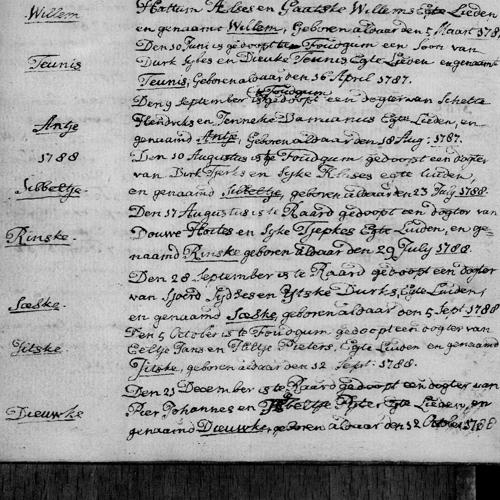 Willem
Hattum Aebes en Gaatske Willems Egte Lieden
en genaamt Willem, Geboren aldaar den 5 Maart 178
Den 10 Juni is gedoopt te Foudgum een Soon van
Teunis
Durk Sybes en Dieuke Teunis Egte Lieden en genaamt
Teunis, Geboren aldaar den 16 April 1787.
te Foudgum
Den 9 September is gedoopt een dogter van Schelte
Antje
Hendriks en Jenneke Egte Lieden, en
genaamd Antje, Geboren aldaar den 18 Aug: 1787.
1788
Den 10 Augustus is te Foudgum gedoopt een dogter
van Durk Tjerks en Sijke egte luiden,
Sibbeltje.
en genaamd Sibbeltje, geboren aldaar den 23 July 1788.
Den 17 Augustus is te Raard gedoopt een dogter van
Rinske.
Douwe Hoites en Sijke Tjepkes Egte Luiden, en ge-
naamd Rinske geboren aldaar den 29 July 1788.
Den 28 September is te Raard gedoopt een dogter
van Sjoerd Sijdses en IJtske Durks, Egte Luiden,
Saeske.
en genaamd Saeske, geboren aldaar den 5 Sept 1788
Den 5 October is te Foudgum gedoopt een dogter van
Jitske.
Eeltje Jans en Pieters, Egte Luiden en genaamd
Jitske, geboren aldaar den 12 Sept: 1788.
Den 21 December is te Raard gedoopt een dogter van
Dieuwke
Pier Johannes en Egte Lieden, en
genaamd Dieuwke, geboren aldaar den 12 October 1788